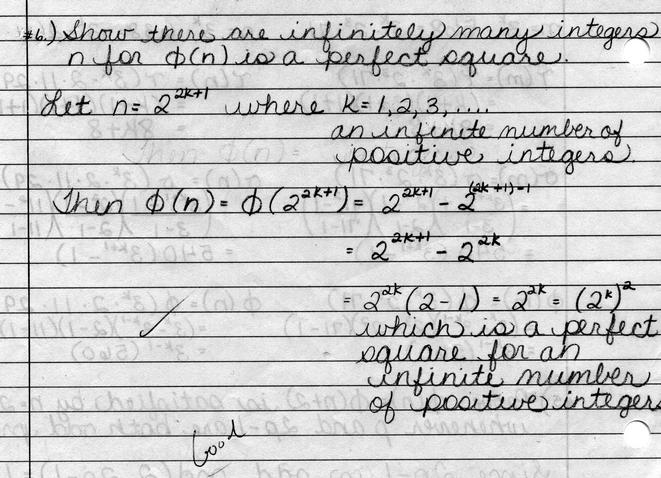 #6.) Show there are infinitely many integers
n for φ(n) is a perfect square.
Let n = 2^{2k+1} where k = 1, 2, 3, ....
an infinite number of
positive integers.
Then φ(n) = φ(2^{2k+1}) = 2^{2k+1} - 2^{(2k+1)-1}
= 2^{2k+1} - 2^{2k}
= 2^{2k}(2-1) = 2^{2k} = (2^k)^2
which is a perfect
square for an
infinite number
of positive integers
Good